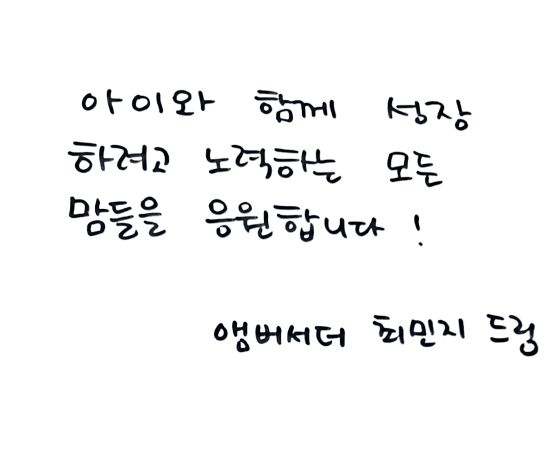 아이와 함께 성장
하려고 노력하는 모든
맘들을 응원합니다!
앰버서더 최민지 드림